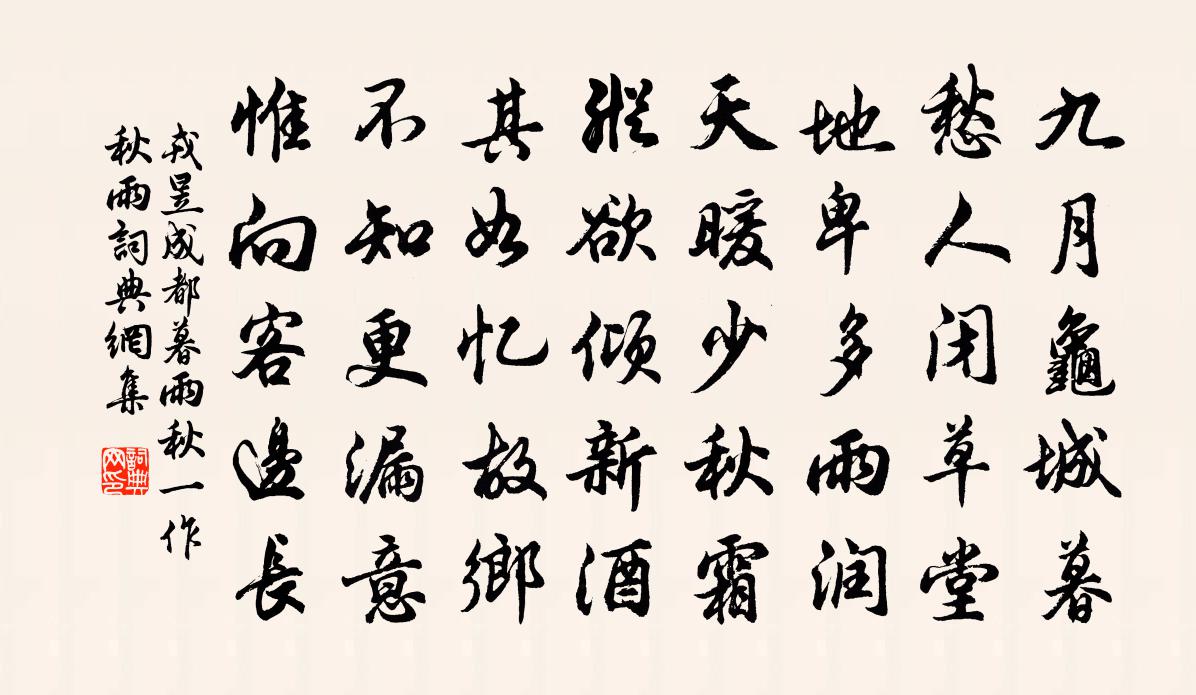 九月龜城暮
愁人闭草堂
地卑多雨润
天暖少秋霜
縱欲倾新酒
其如忆故鄉
不知更漏意
惟向客邊長
戎昱成都暮雨秋一作
秋雨詞典網集
詞典网印